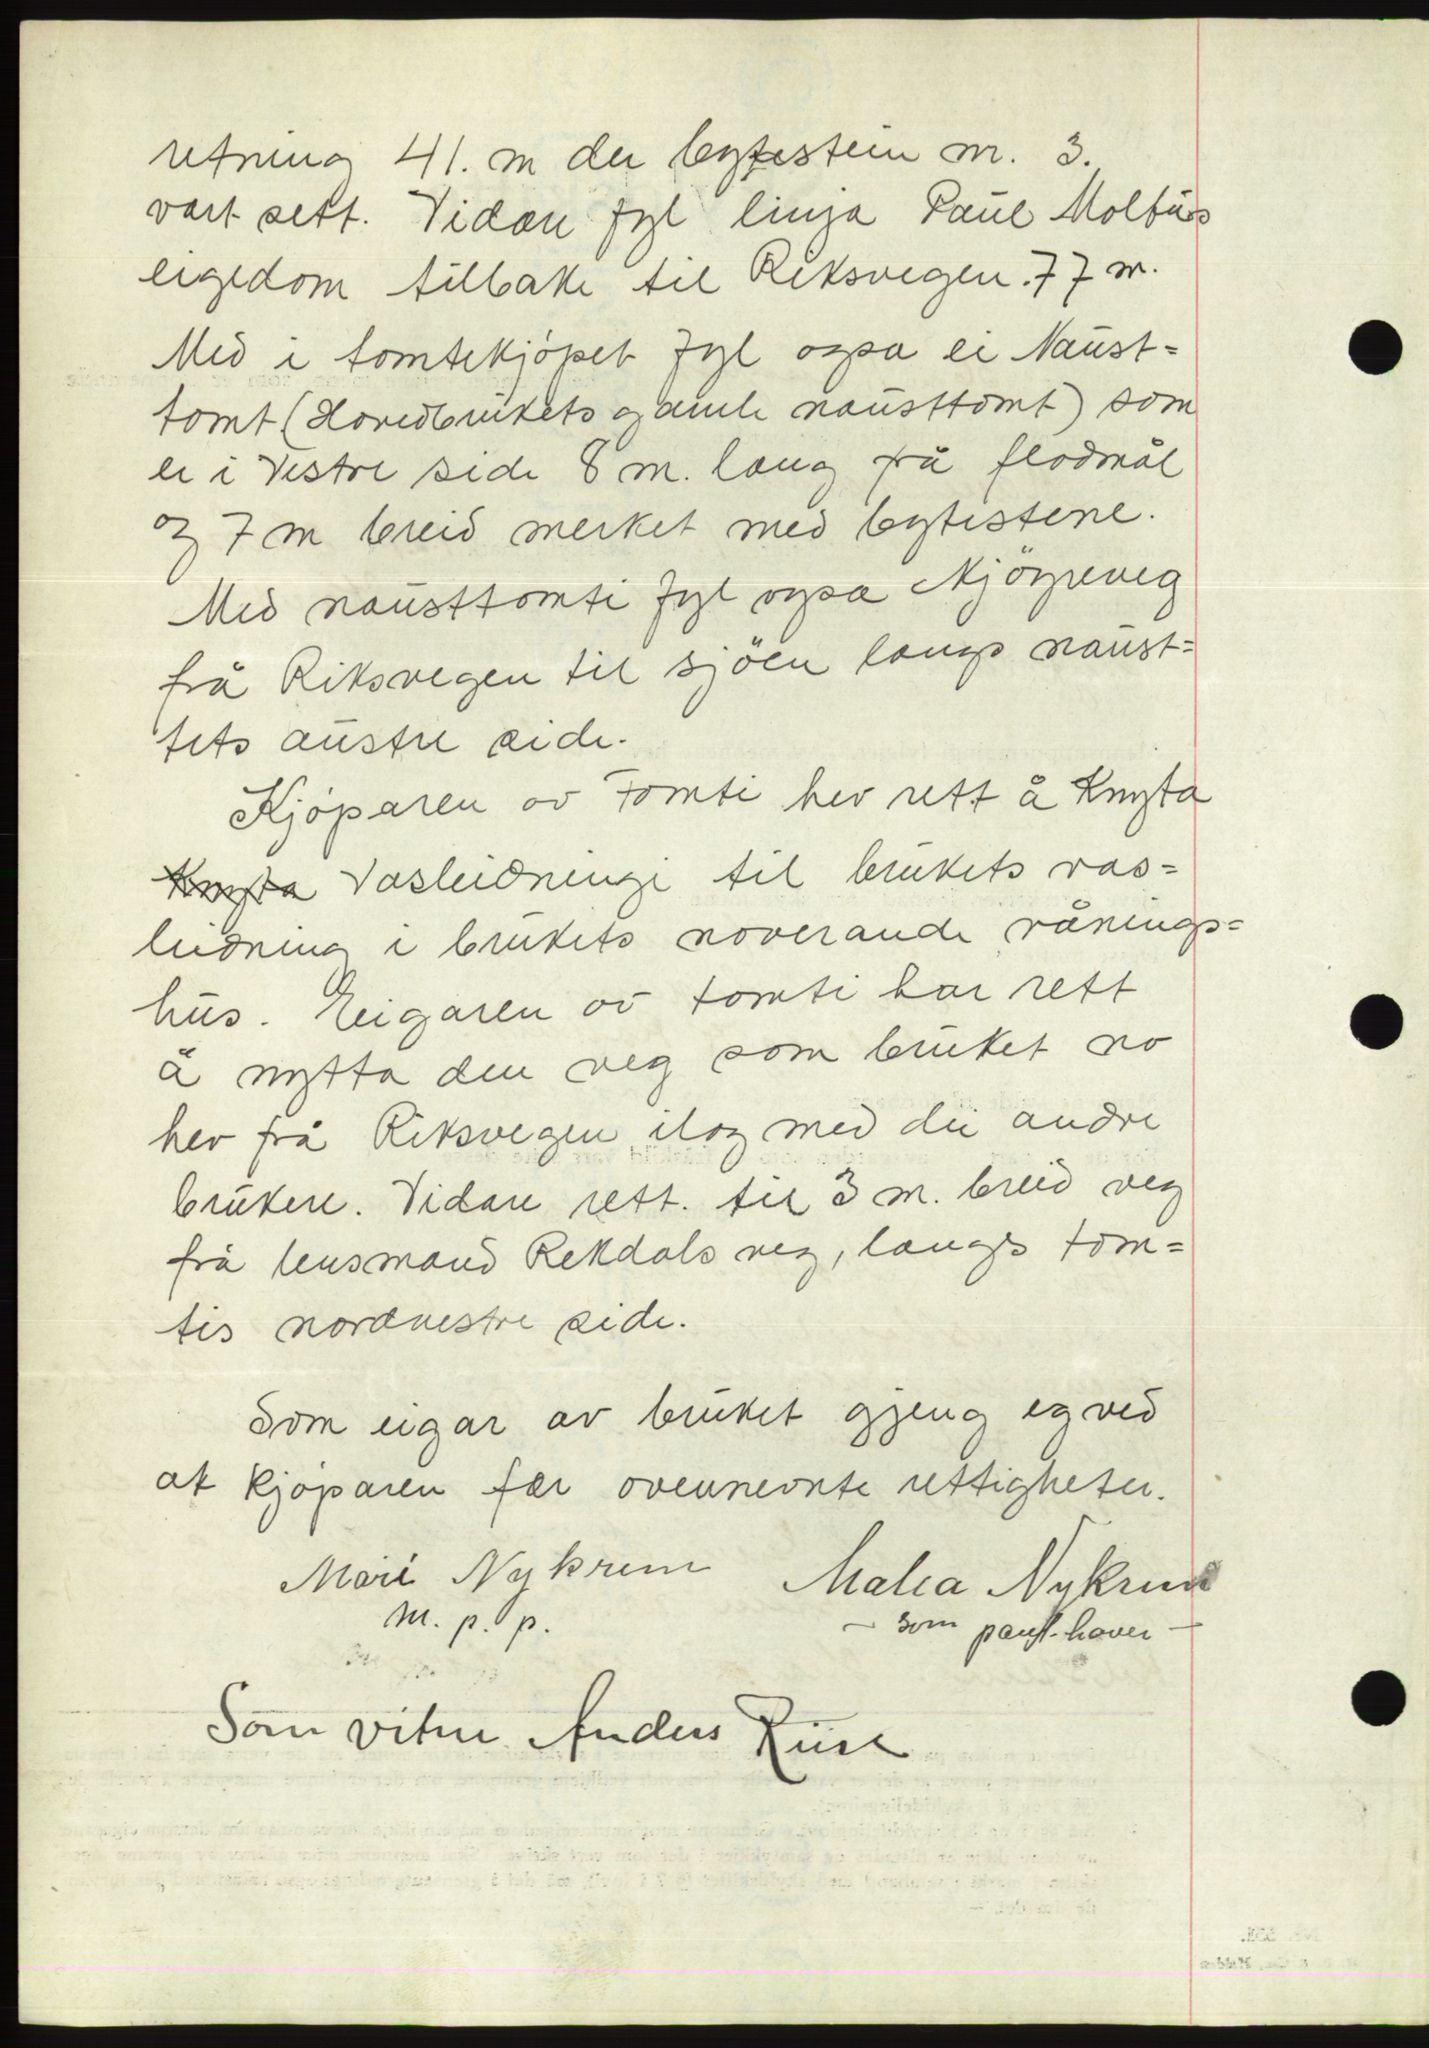 retning 41. m der bytestein nr. 3.
vart sett. Vidare fyl linja Paul Moltus
eigedom tilbake til Riksvegen. 77 m.
Med i tomtekjöpet fyl ogsa ei Naust=
tomt (Hovedbrukets gamle nausttomt) som
er i Vestre side 8 m. lang frå flodmål
og 7 m breid merket med bytestene.
Med nausttomti fyl ogsa Kjöyreveg
frå Riksvegen til sjöen langs naust=
tets austre side.
Kjöparen av Tomti hev rett å Knyta
Knyta Vasleidningi til brukets vas=
leidning i brukets noverande vånings=
hus. Eeigaren av tomti har rett
å nytta den veg som bruket no
hev frå Riksvegen ilag med dei andre
brukere. Vidare rett. til 3 m. breid veg
frå lensmand Rekdals veg, langs tom=
tis nordvestre side.
Som eigar av bruket gjeng eg ved
at kjöparen fær ovennevnte rettigheter.
Mari Nykrem Malea Nykrem
m. p. p. – som pant-haver –
Som vitne Anders Riise